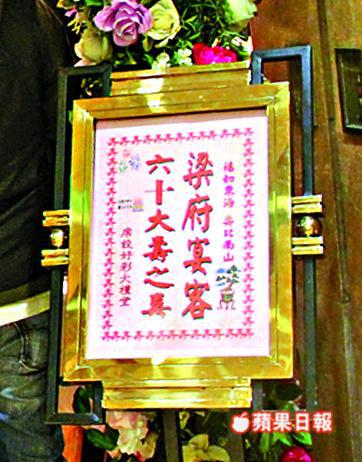 福如東海 壽比南山
梁府宴客
六十大壽之喜
席設好彩大禮堂
蘋果日報